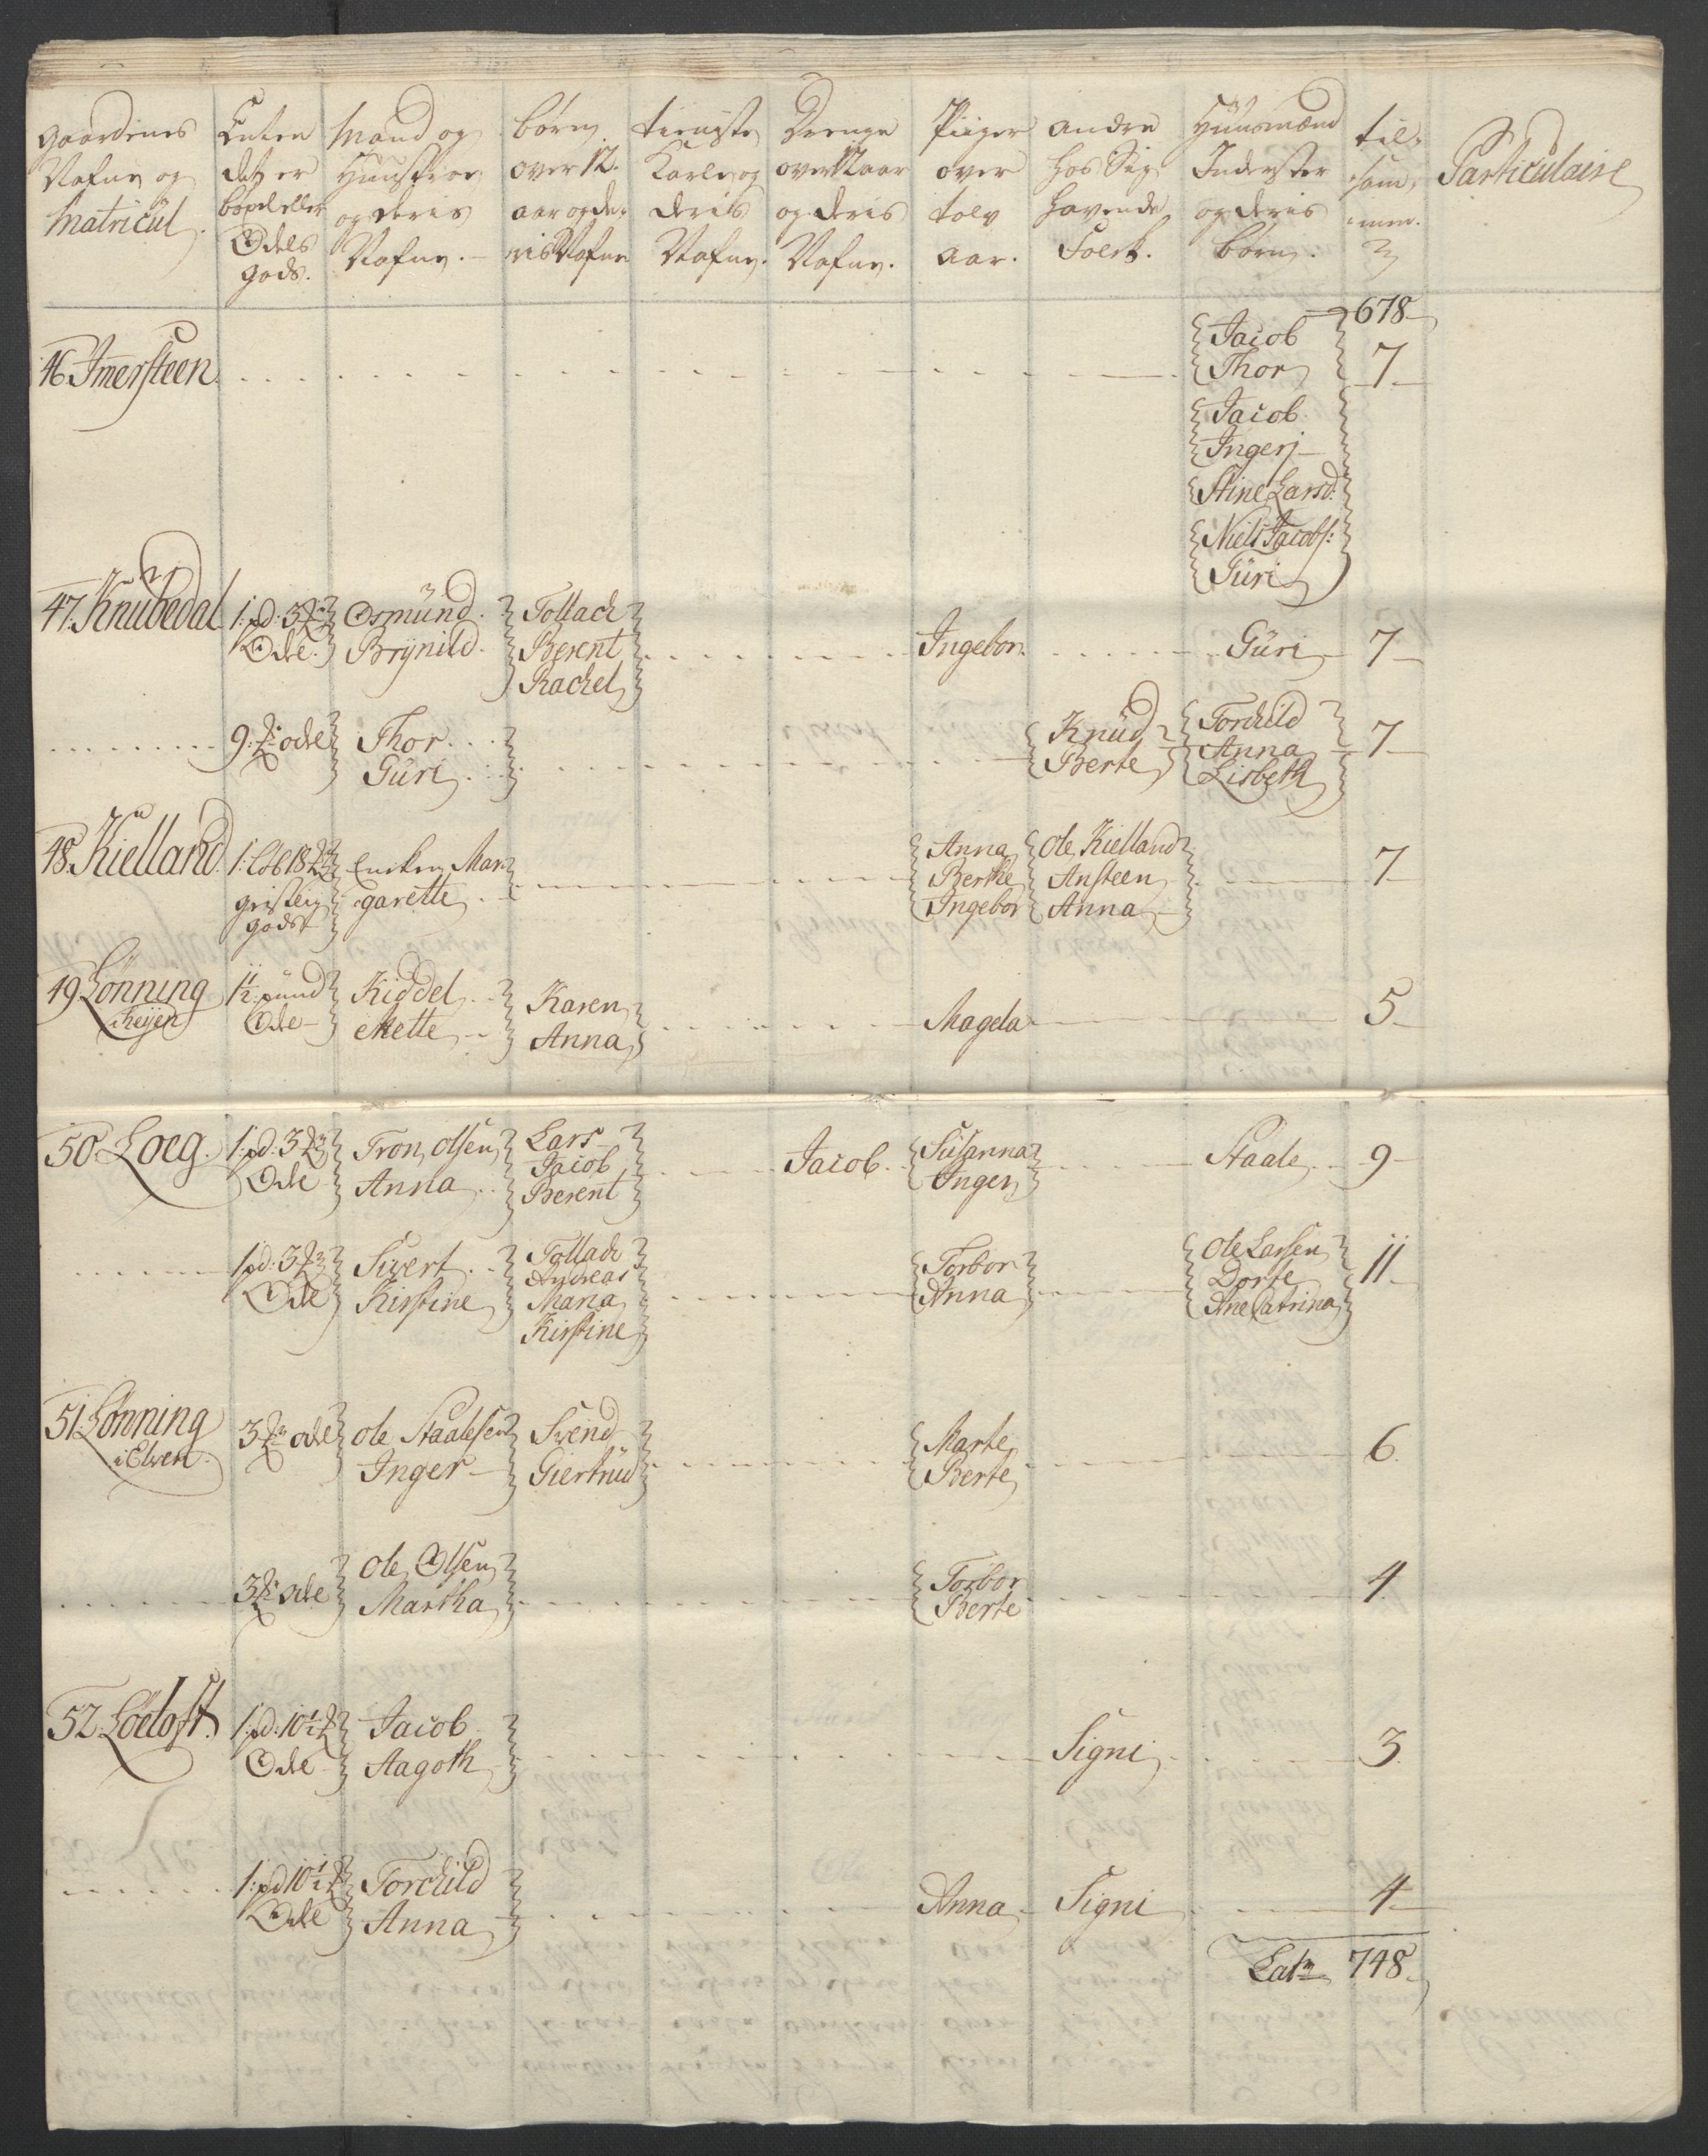 Gaardenes
Nafne og
Matricul.
Enten
det er
böxel eller
Odels
gods.
Mand og
Huustroe
og deris
Nafne.
börn
over 12.
aar og de-
ris Nafne
tieniste
Karle og
deris
Nafne.
Drenge
over 12 aar
og deris
Nafne.
Piiger
over
tolv
aar.
andre
hos Sig
havende
Folck.
Huusmænd
Inderster
og deris
börn.
til-
sam-
men.
Particulaire
678
46 Imersteen
Jacob
Thor
7
Jacob
Ingerj
Stine Larsd:
Niels Jacobs:
Güri
47. Knubedal
1: pd: 3
Ode
Osmünd
Brynild
Tollack
Berent
Rachel
Ingebor
Güri
7
9: ode
Thor
Güri
Knüd
Berte
Torckild
Anna
Lisbeth
7
48. Kielland
1: 18
gods
Encken Mar-
garette
Anna
Berthe
Ingebor
Ole Kielland
Ansteen
Anna
7
49 Lönning
1½ pünd
Ode
Kiddel
Mette
Karen
Anna
Magela
5
50. Loeg
1: pd: 3
Ode
Tron Olsen
Anna
Lars
Jacob
Berent
Jacob
Süsanna
Inger
Staale
9
1 pd: 3
Ode
Sivert
Kirstine
Tollack
Andreas
Maria
Kirstine
Torbor
Anna
Ole Larsen
Dorte
Ane Catrina
11
51. Lönning
i Elven
3 ode
Ole Staalesen
Inger
Svend
Giertrüd
Marte
Berte
6
3 ode
Ole Olsen
Martha
Torbor
Berte
4
52. Lödoft
1: pd: 10½
Ode
Jacob
Aagoth
Signi
3
1: pd 10½
Ode
Torckild
Anna
Anna
Signi
4
Lat 748